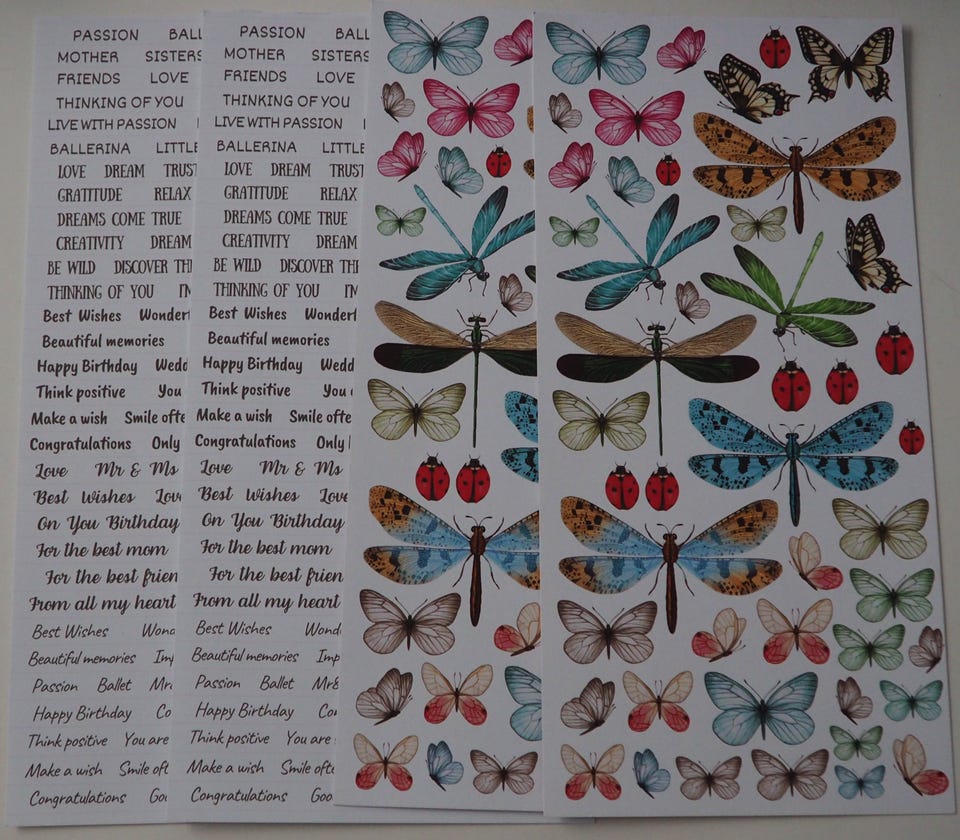 PASSION BALL
MOTHER SISTERS
FRIENDS LOVE
THINKING OF YOU
LIVE WITH PASSION
BALLERINA LITTLE
LOVE DREAM TRUST
GRATITUDE RELAX
DREAMS COME TRUE
CREATIVITY DREAM
BE WILD DISCOVER TH
THINKING OF YOU I'M
Best Wishes Wonderf
Beautiful memories
Happy Birthday Wedd
Think positive You
Make a wish Smile ofte
Congratulations Only
Love Mr & Ms
Best Wishes Love
On You Birthday
For the best mom
For the best frien
From all my heart
Best Wishes Wond
Beautiful memories Imp
Passion Ballet Mr
Happy Birthday Co
Think positive You are
Make a wish Smile oft
Congratulations Goo
PASSION BALL
MOTHER SISTERS
FRIENDS LOVE
THINKING OF YOU
LIVE WITH PASSION
BALLERINA LITTLE
LOVE DREAM TRUST
GRATITUDE RELAX
DREAMS COME TRUE
CREATIVITY DREAM
BE WILD DISCOVER TH
THINKING OF YOU I'M
Best Wishes Wonderf
Beautiful memories
Happy Birthday Wedd
Think positive You
Make a wish Smile ofte
Congratulations Only
Love Mr & Ms
Best Wishes Love
On You Birthday
For the best mom
For the best frien
From all my heart
Best Wishes Wond
Beautiful memories Imp
Passion Ballet Mr&
Happy Birthday Co
Think positive You are
Make a wish Smile ofte
Congratulations Goo